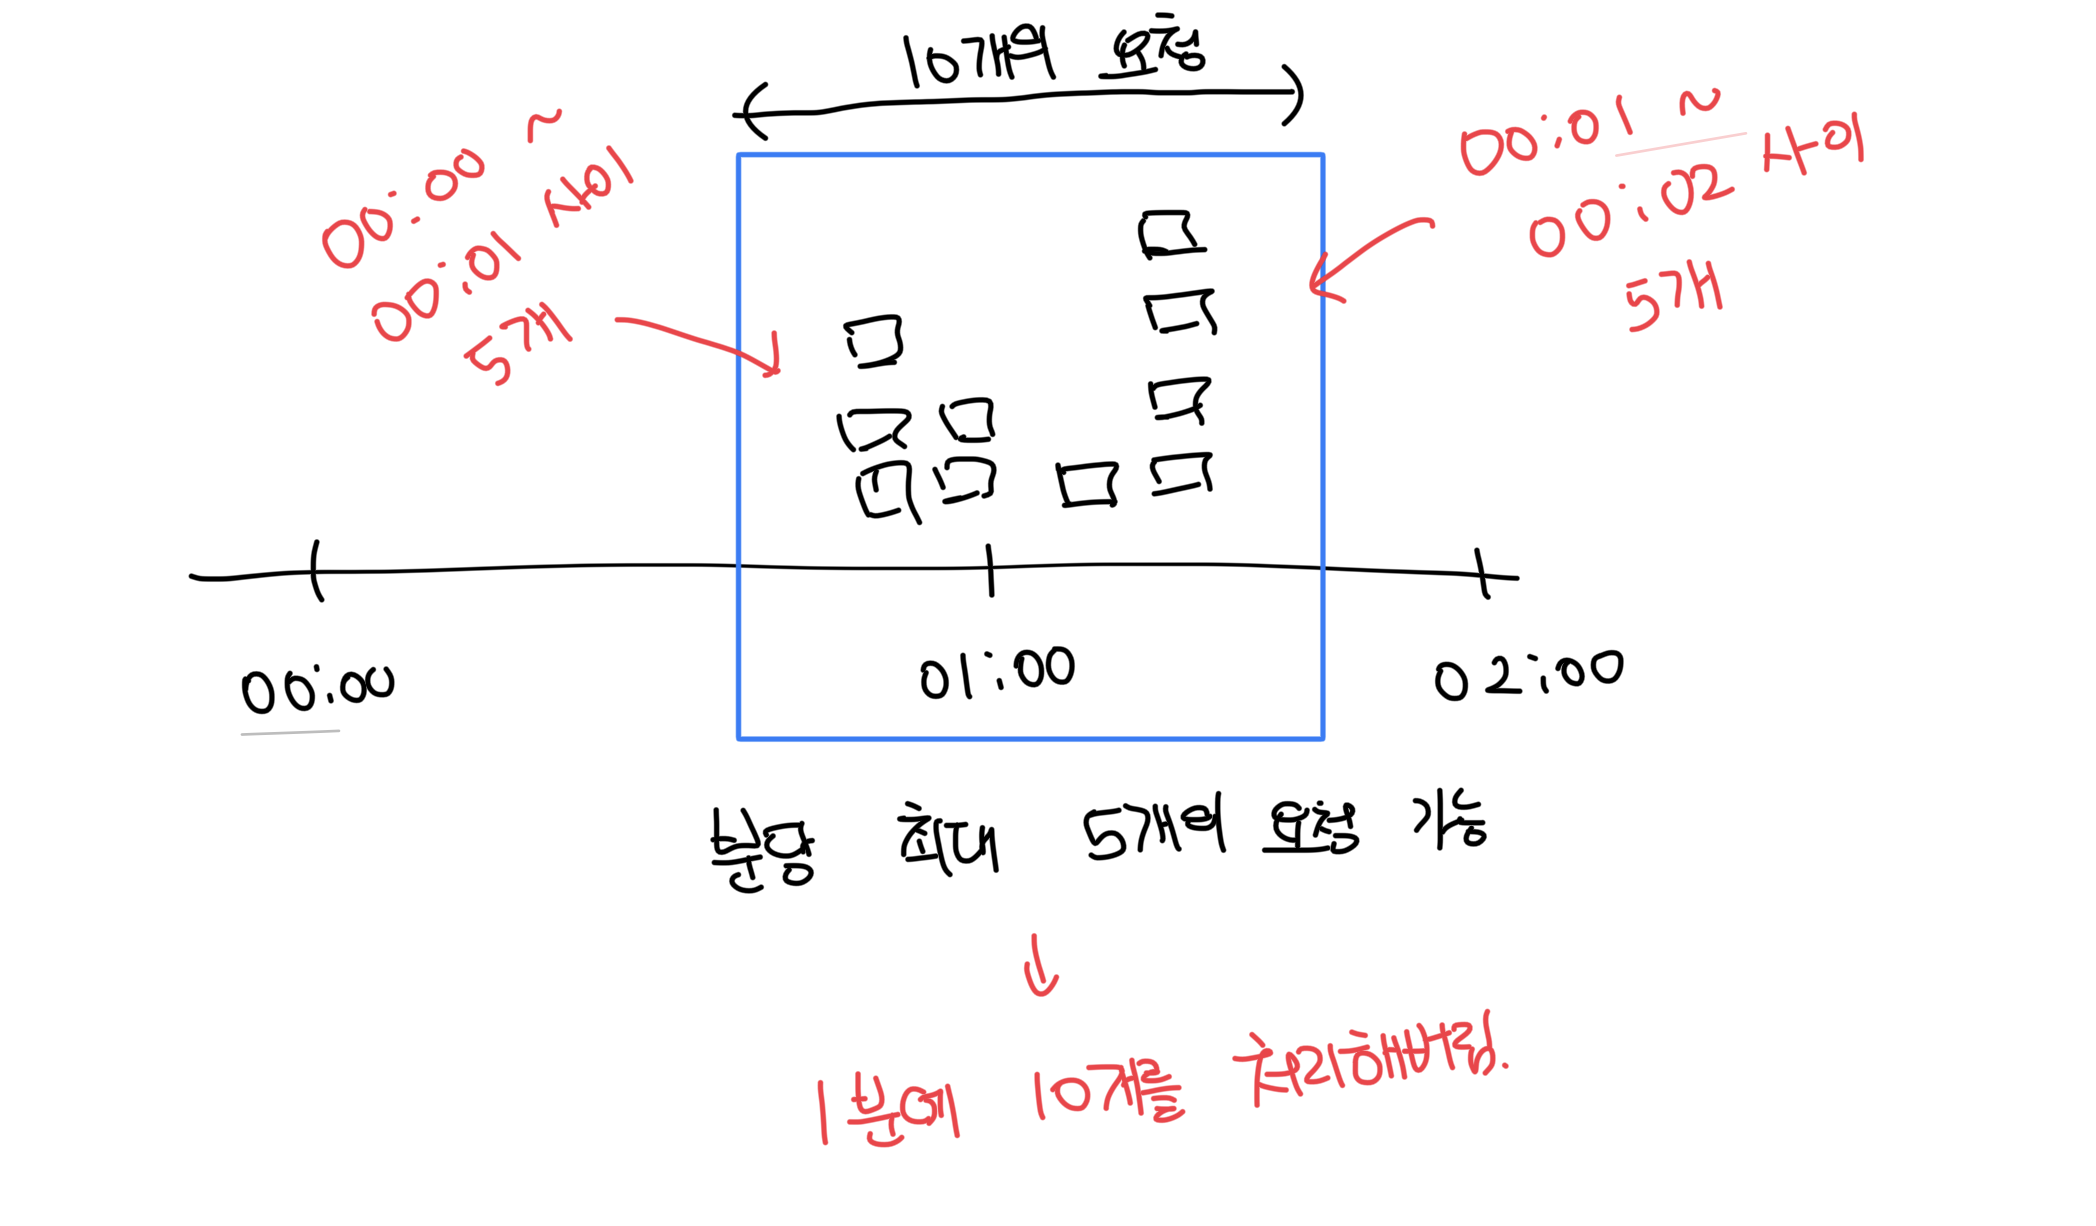 10개의 요청
00:00 ~
00:01 사이
5개
00:01 ~
00:02 사이
5개
00:00
01:00
02:00
분당 최대 5개의 요청 가능
1분에 10개를 처리해버림.